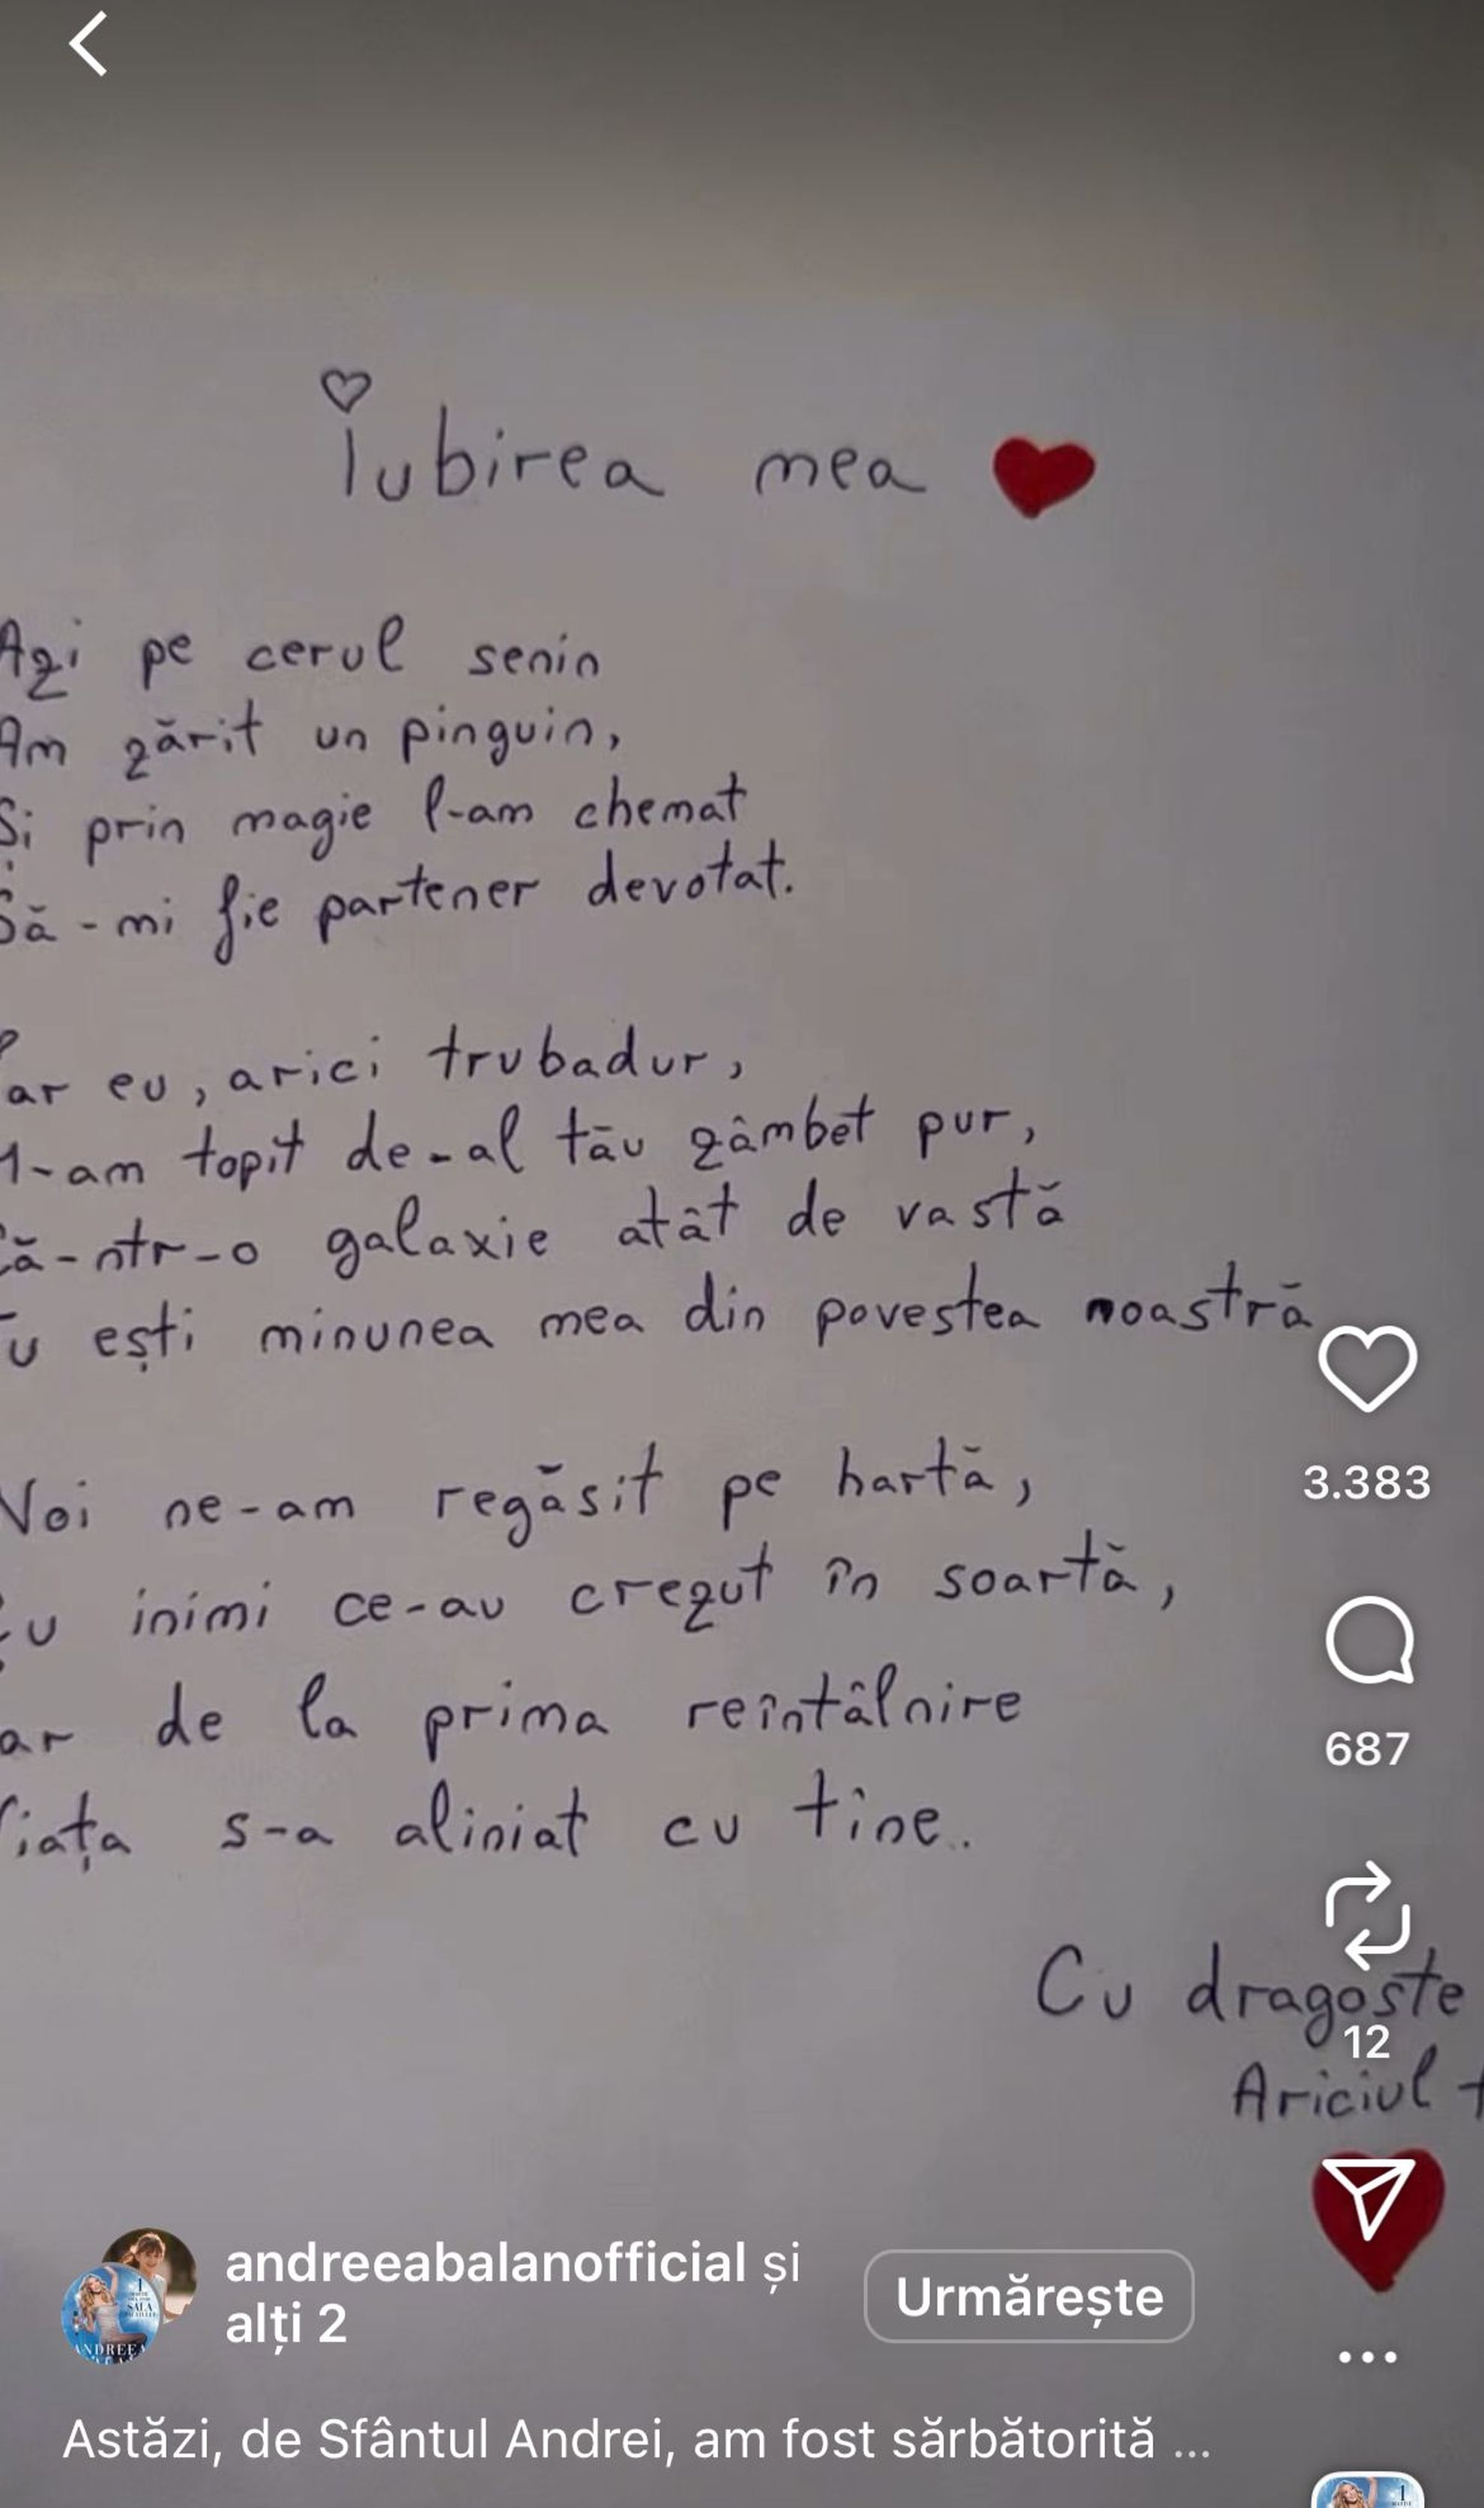 Iubirea mea
Azi pe cerul senin
Am zărit un pinguin,
Și prin magie l-am chemat
Să-mi fie partener devotat.
ar eu, arici trubadur,
M-am topit de-al tău zâmbet pur,
Că-ntr-o galaxie atât de vastă
Tu ești minunea mea din povestea noastră
Noi ne-am regăsit pe hartă,
Cu inimi ce-au crezut în soartă,
ar de la prima reîntâlnire
Viața s-a aliniat cu tine.
Cu dragoste
Ariciul t
3.383
687
12
andreeabalanofficial și
alți 2
Urmărește
Astăzi, de Sfântul Andrei, am fost sărbătorită ...